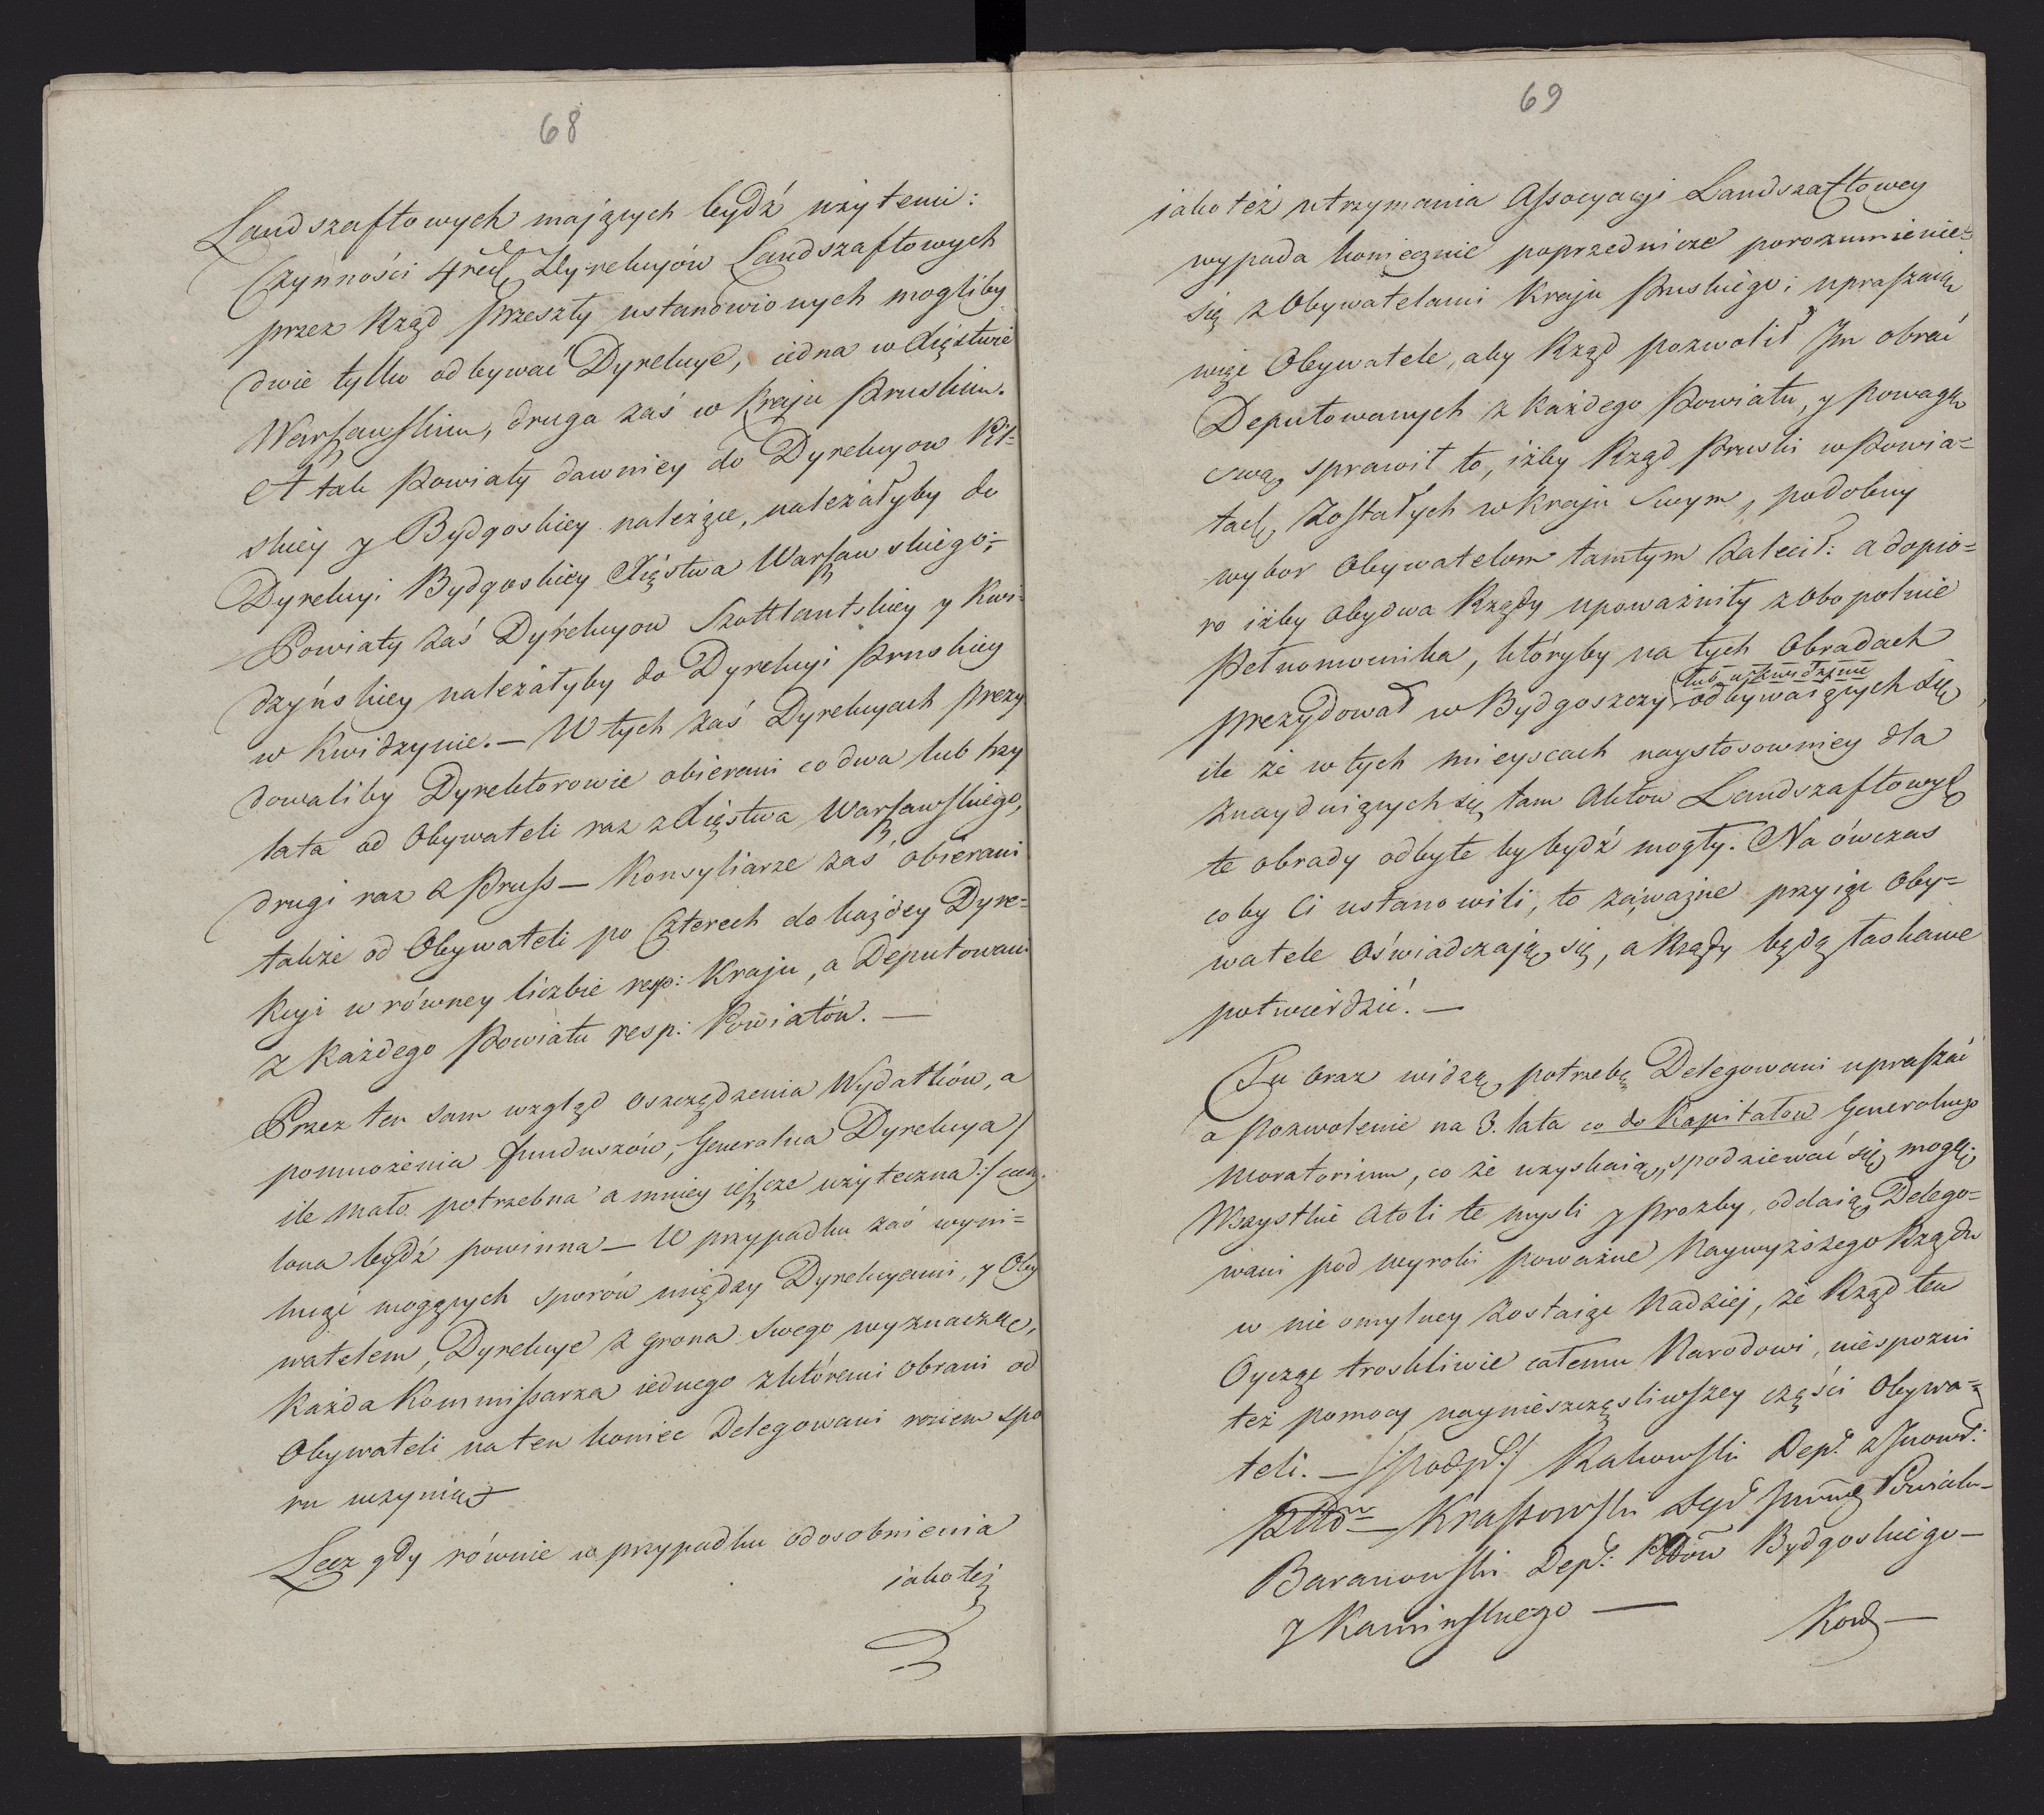 68
Landszaftowych mających bydź użytemi:
Czynności 4rech Dyrekcyów Landszaftowych
przez Rząd Przeszły ustanowionych mogliby
dwie tylko odbywać Dyrekcye, iedna w Xięstwie
Warszawskim, druga zaś w Kraju Pruskim.
A tak Powiaty dawniey do Dyrekcyow Pil=
skiey y Bydgoskiey należące, należałyby do
Dyrekcyi Bydgoskiey Xięstwa Warszawskiego;
Powiaty zaś Dyrekcyow Szottlantskiey y Kwi-
dzyńskiey należałyby do Dyrekcyi Pruskiey
w Kwidzynie. — W tych zaś Dyrekcyach prezy
dowaliby Dyrektorowie obierani co dwa lub trzy
lata od Obywateli raz z Xięstwa Warszawskiego,
drugi raz z Pruss — Konsyliarze zaś obierani
także od Obywateli po Czterech do każdey Dyre=
kcyi w równey liczbie resp: Kraju, a Deputowani
z Każdego Powiatu resp: Powiatów. —
Przez ten sam wzgląd oszczędzenia Wydatków, a
pomnożenia funduszów, Generalna Dyrekcya /
ile mało potrzebna a mniey ieszcze użyteczna :/
lona bydź powinna — W przypadku zaś wyni=
knąć mogących sporów między Dyrekcyami, y Oby
watelem, Dyrekcye z grona swego wyznaczą,
Każda Kommissarza iednego z któremi obrani od
Obywateli na ten koniec Delegowani roziem spo
ru uczynią
Lecz gdy równie w przypadku odosobnienia
iako też
69
iako też utrzymania Assocyacyi Landszaftowey
wypada koniecznie poprzednicze porozumienie
się z Obywatelami Kraju Pruskiego; upraszaią
więc Obywatele, aby Rząd pozwolił Im obrać
Deputowanych z Każdego Powiatu, y Powagą
swą sprawił to, iżby Rząd Pruski w Powia=
tach Zostałych w Kraju Swym, podobny
wybor Obywatelom tamtym Zalecił: a dopie=
ro iżby Obydwa Rządy upoważniły zobopolnie
Pełnomocnika, któryby na tych Obradach
lub w Kwidzynie
prezydował w Bydgoszczy odbywaiących się
ile że w tych mieyscach naystosowniey dla
Znayduiących się tam Aktow Landszaftowych
te obrady odbyte by bydź mogły. Na ówczas
coby Ci ustanowili, to za ważne przyiąć Oby=
watele Oświadczają się, a Rządy będą łaskawe
potwierdzić. —
Tu oraz widzą potrzebę Delegowani upraszać
o Pozwolenie na 3. lata co do Kapitałow Generalnego
Moratorium, co że uzyskaią, spodziewać się mogą;
Wszystkie Atoli te mysli y Prozby, oddaią Delego=
wani pod wyrok Poważne Naywyższego Rządu
w nie omylney zostaiąc Nadziej, że Rząd ten
Oycząc troskliwie całemu Narodowi, nie spozni
też pomocy naynieszczęsliwszey części Obywa=
teli. — /:podp:/ Rakowski Dep. z Inowł:
Pttow — Krassowski Dep. Powiatu —
Baranowski Dep: Pttow Bydgoskiego —
y Kaminskiego —